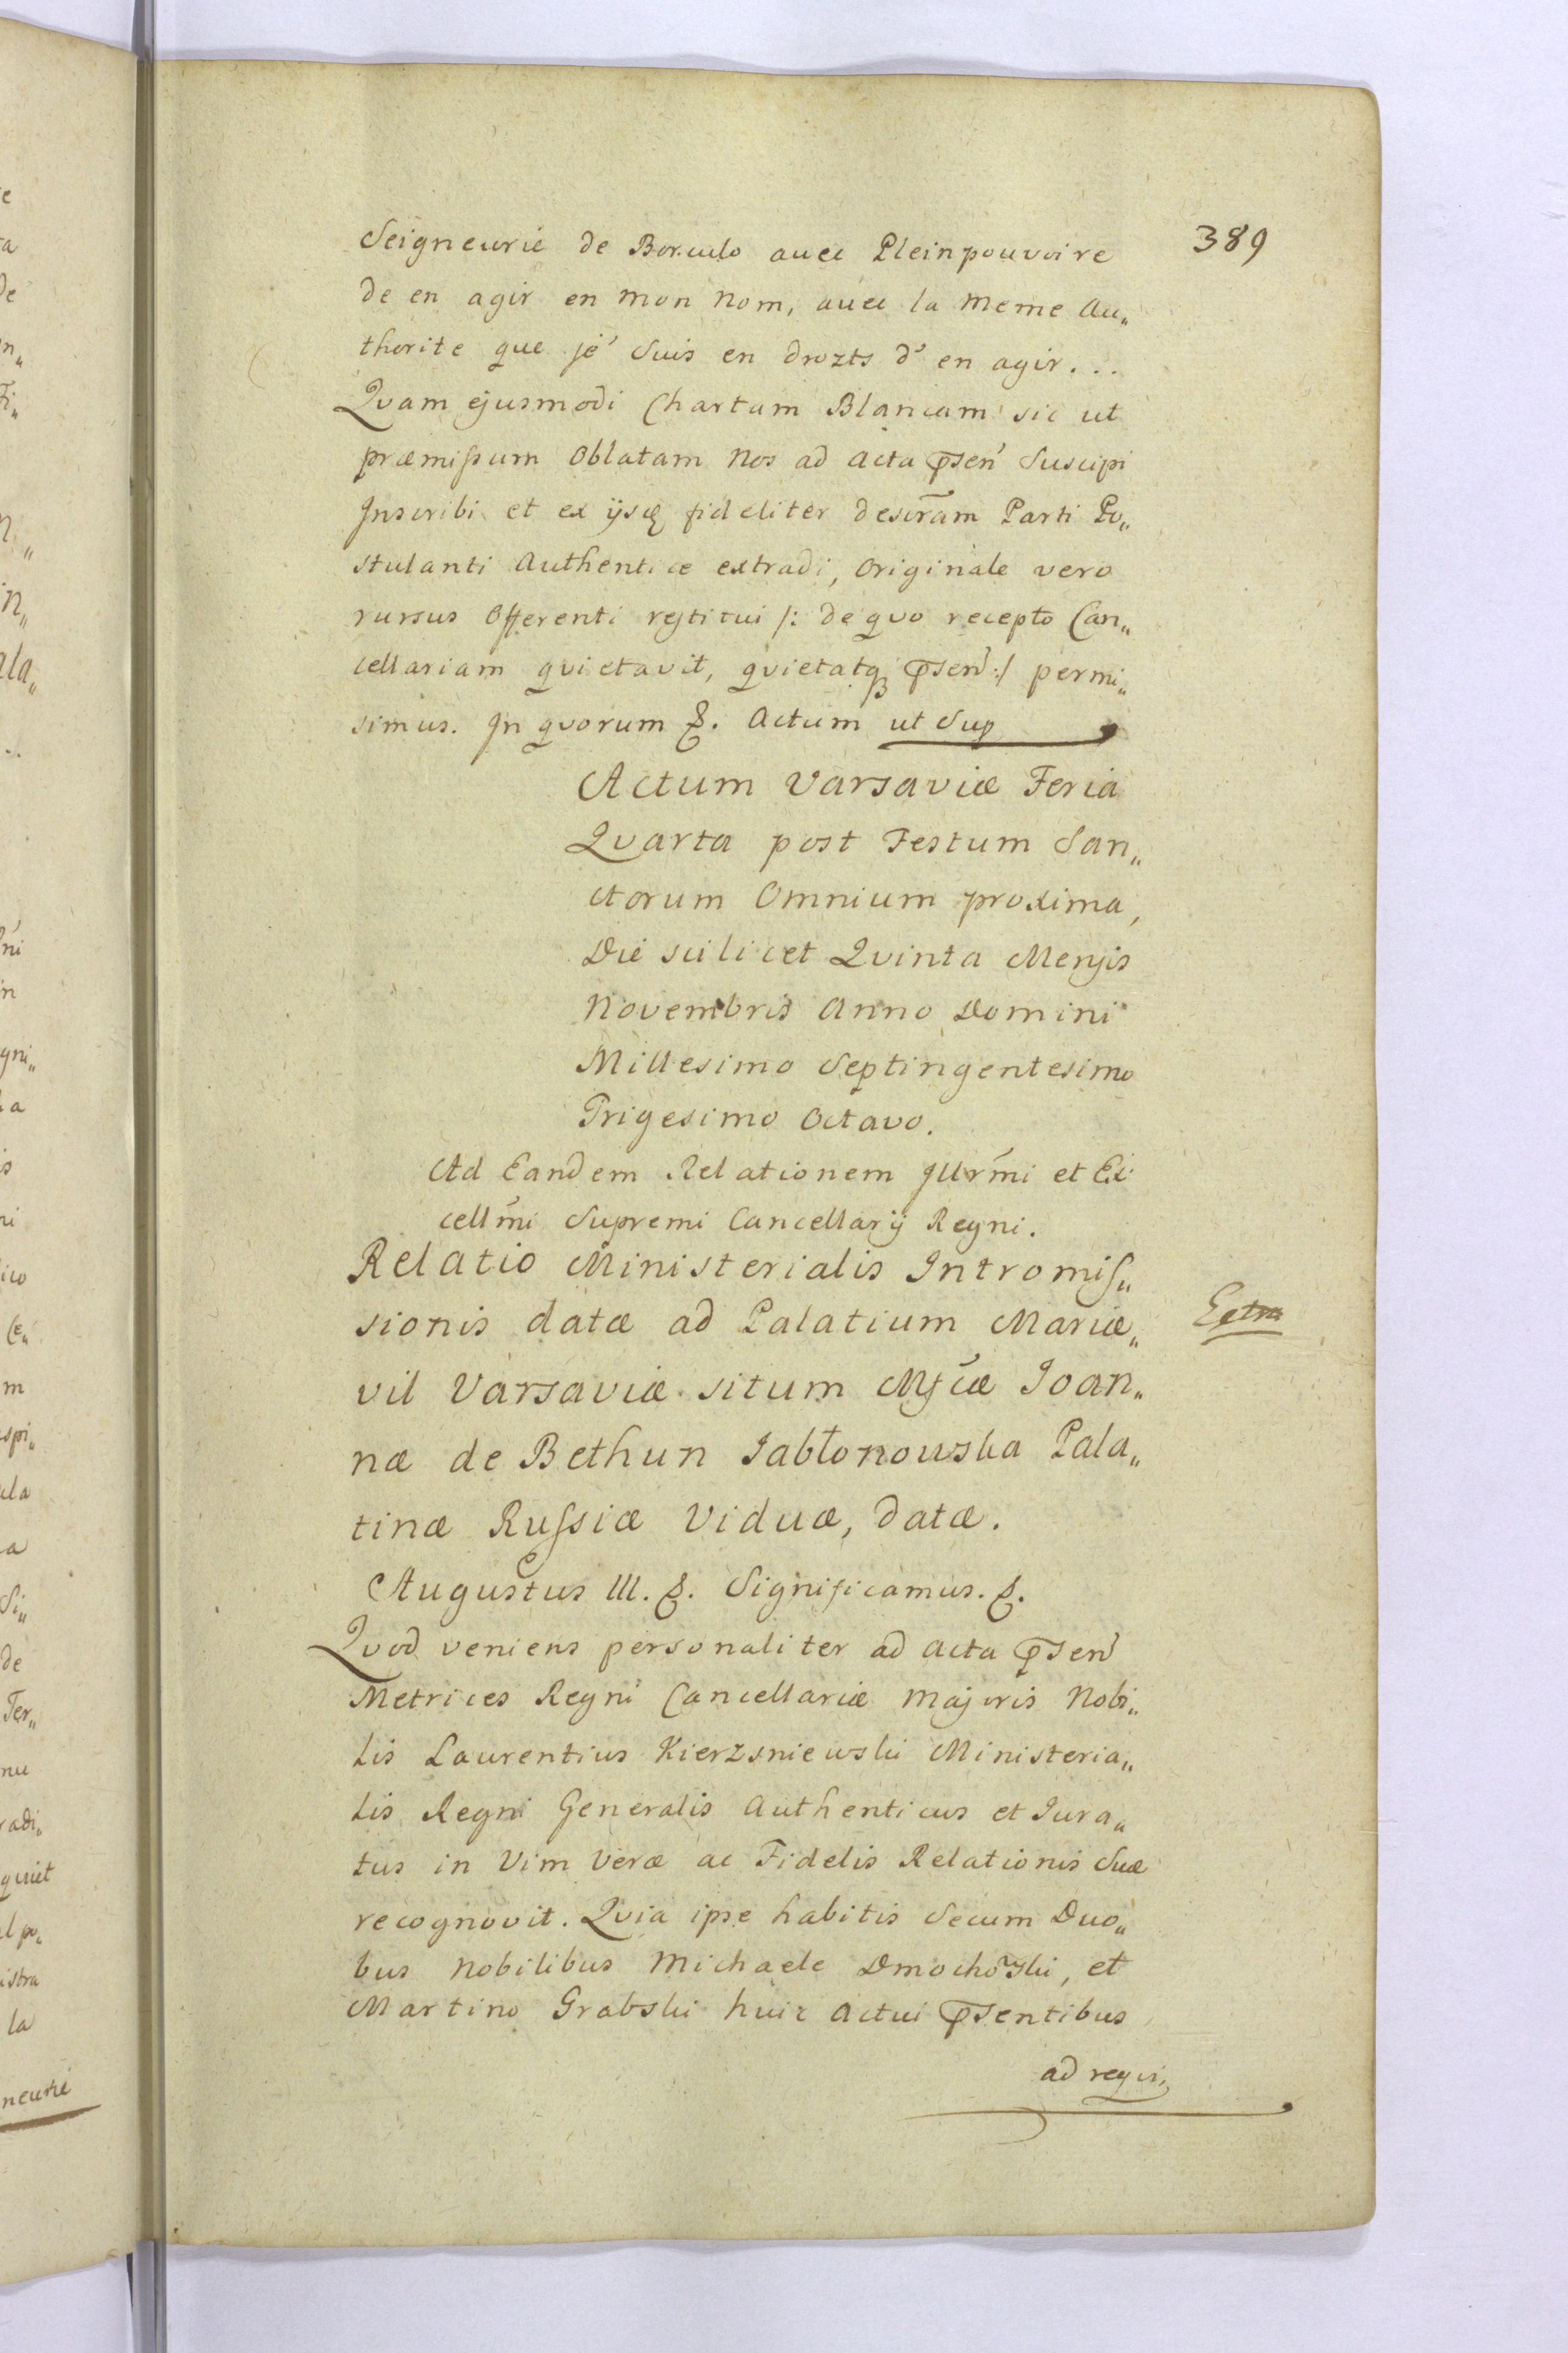 389
Seigneurie de Borculo auec Pleinpouvoire
de en agir en mon nom, auec la meme Au„
thorite que je' suis en drozts d' en agir...
Qvam ejusmodi Chartam Blancam sic ut
præmissum Oblatam Nos ad Acta p̃sen' Suscipi
Inscribi et ex ijsq fideliter descrãm Parti Po„
stulanti Authentice extradi, Originale vero
rursus Offerenti restitui /: de qvo recepto Can„
cellariam qvietavit, qvietatq p̃sen' :/ permi„
simus. In qvorum &. Actum ut Sup
Actum Varsaviæ Feria
Qvarta post Festum San„
ctorum Omnium proxima,
Die scilicet Qvinta Mensis
Novembris Anno Domini
Millesimo Septingentesimo
Trigesimo Octavo.
Ad Eandem Relationem Jllr̃mi et Ex
cellm̃i Supremi Cancellarij Regni.
Relatio Ministerialis Intromis„
sionis datæ ad Palatium Mariæ„
vil Varsaviæ situm Mfc̃æ Joan„
næ de Bethun Jabłonowska Pala„
tinæ Russiæ Viduæ, datæ.
Extra
Augustus III. &. Significamus. &.
Qvod veniens personaliter ad Acta p̃sen'
Metrices Regni Cancellariæ Majoris Nobi„
lis Laurentius Kierzsniewski Ministeria„
lis Regni Generalis Authenticus et Jura„
tus in Vim Veræ ac Fidelis Relationis Suæ
recognovit. Qvia ipse habitis Secum Duo„
bus Nobilibus Michaele Dmochõski, et
Martino Grabski huic Actui p̃sentibus
ad reqvi„